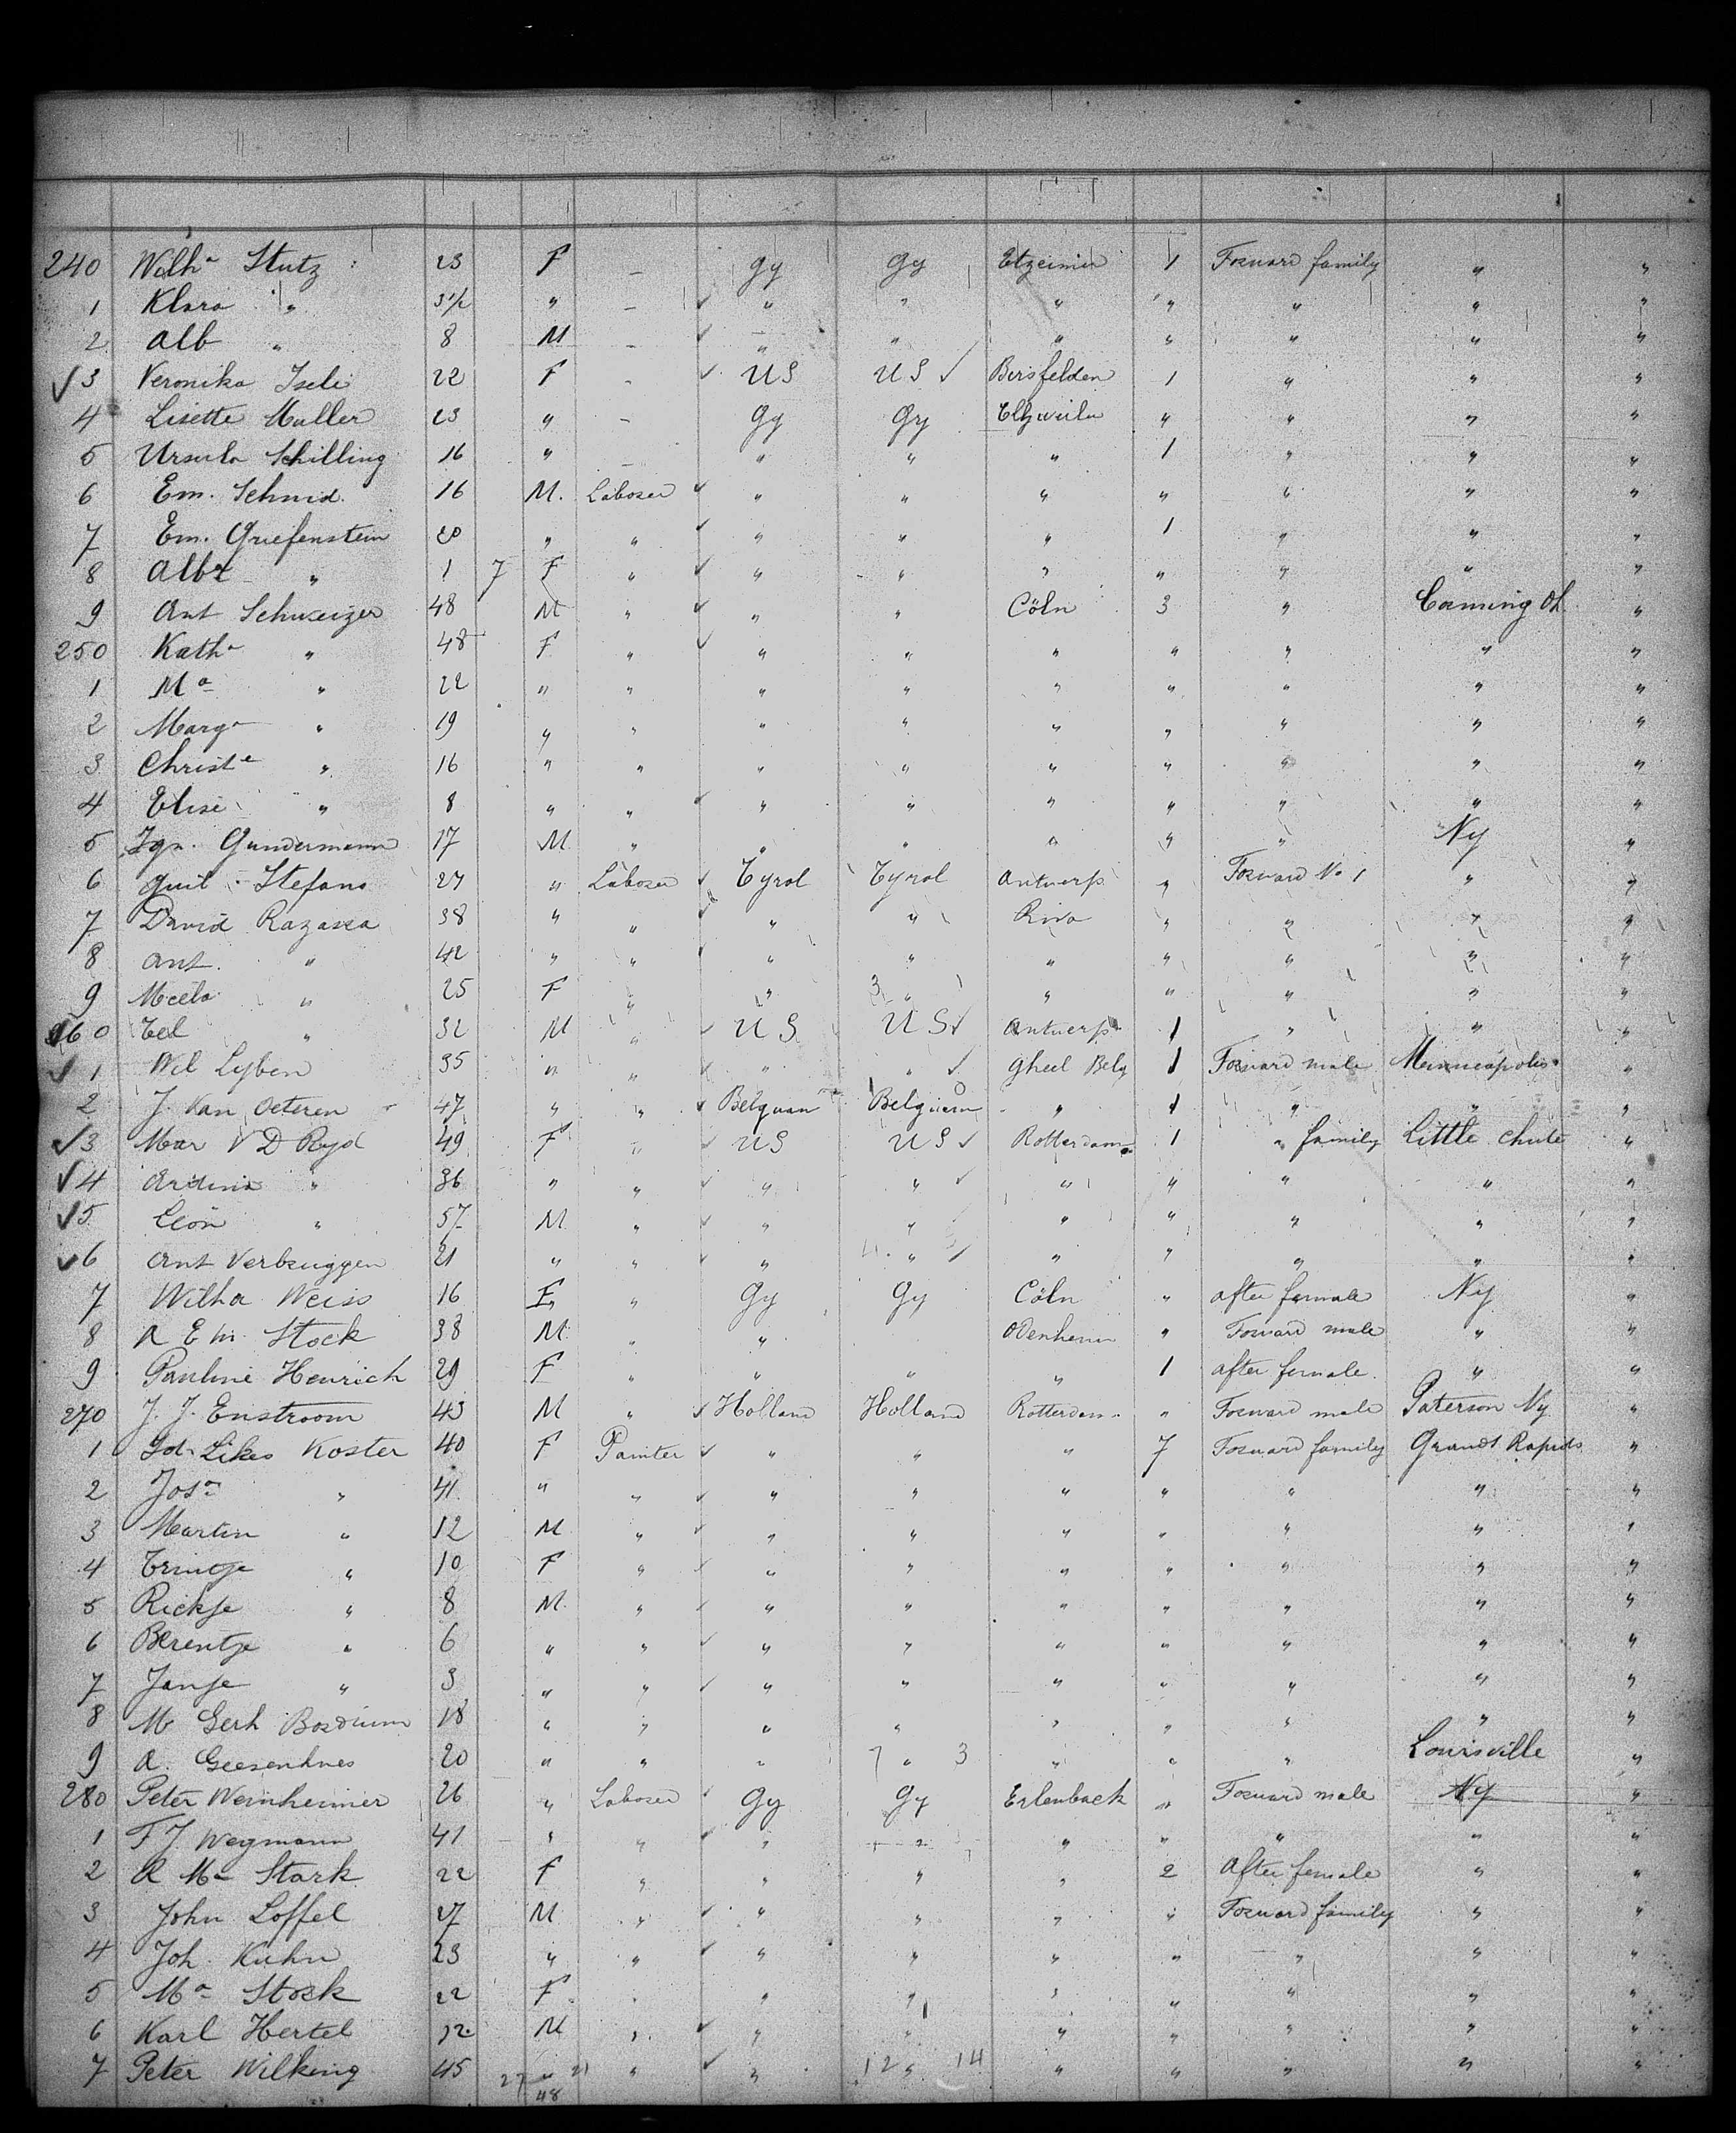 240 Wilhª Stutz : 23 F – Gy Gy Etzeimin 1 Forward family " "
1 Klara " 3½ " – ✓ " " " " " " "
2 Alb " 8 M – ✓ " " " " " " "
✓ 3 Veronika Iseli 22 F - ✓ US US ✓ Birsfelden 1 " " "
4 Lisette Muller 23 " – Gy Gy " " " "
5 Ursula Schilling 16 " – " " " 1 " " "
6 Em. Schmid 16 M. Laborer ✓ " " " " " " "
7 Em. Griefenstein 20 " " ✓ " " " 1 " " "
8 Albt " 1 7 F " ✓ " " " " " " "
9 Ant Schweizer 48 M " ✓ " " Cöln 3 " Corning Oh "
250 Kathª " 48 F " ✓ " " " " " " "
1 Mª " 22 " " " " " " " " "
2 Margª " 19 " " " " " " " " "
3 Christe " 16 " " " " " " " " "
4 Elise " 8 " " ✓ " " " " " " "
5 Ign. Gundermann 17 M " " " " " " Ny "
6 Guil Stefano 27 " Laborer ✓ Tyrol Tyrol Antwerp " Forward No 1 " "
7 David Razaxa 38 " " ✓ " " Riva " " " "
8 Ant. " 42 " " ✓ " " " " " " "
9 " 25 F " " 3 " " " " " "
260 " 32 M " ✓ US US ✓ Antwerp 1 " " "
✓ 1 Wil Lyben 35 " " ✓ " " ✓ Gheel Belg 1 Forward male Minneapolis "
2 J. Van Oeteren 47 " " ✓ Belguan Belguam " 1 " " "
✓ 3 Mar V D Ryd 49 F " ✓ US US ✓ Rotterdam 1 " family Little Chute "
✓ 4 Ardina " 36 " " ✓ " " ✓ " " " " "
✓ 5 Leon " 57 M " ✓ " " ✓ " " " " "
✓ 6 Ant Verbruggen 21 " " ✓ " 4 " ✓ " " " " "
7 Wilha Weiss 16 F " Gy Gy Cöln " after female Ny "
8 A E m. Stock 38 M " " Odenheim " Forward male " "
9 Pauline Henrich 29 F " " " " 1 after female " "
270 J. J. Enstroom 43 M " ✓ Holland Holland Rotterdam " Forward male Paterson Ny "
1 Likes Koster 40 F Painter ✓ " " " 7 Forward family Grand Rapids "
2 Josª " 41 " " ✓ " " " " " " "
3 Martin " 12 M " ✓ " " " " " " "
4 Trintje " 10 F " ✓ " " " " " " "
5 Rickje " 8 M " ✓ " " " " " " "
6 Berentje " 6 " " ✓ " " " " " " "
7 Janje " 3 " " ✓ " " " " " " "
8 M Gerh 18 " " " " " " " " "
9 A. 20 " " " 7 " 3 " " " Louisville "
280 Peter Weinheimer 26 " Laborer ✓ Gy Gy Erlenback " Forward male Ny "
1 F J Wegmann 41 " " ✓ " " " " " " "
2 A Mª Stark 22 F " " " " 2 after female " "
3 John Loffel 27 M " ✓ " " " " Forward family " "
4 Joh. Kuhn 23 " " ✓ " " " " " " "
5 Mª Stock 22 F " " " " " " " "
6 Karl Hertel M " ✓ " " " " " " "
7 Peter Wilking 45 27 " 21 " ✓ " 12 " 14 " " " " "
48